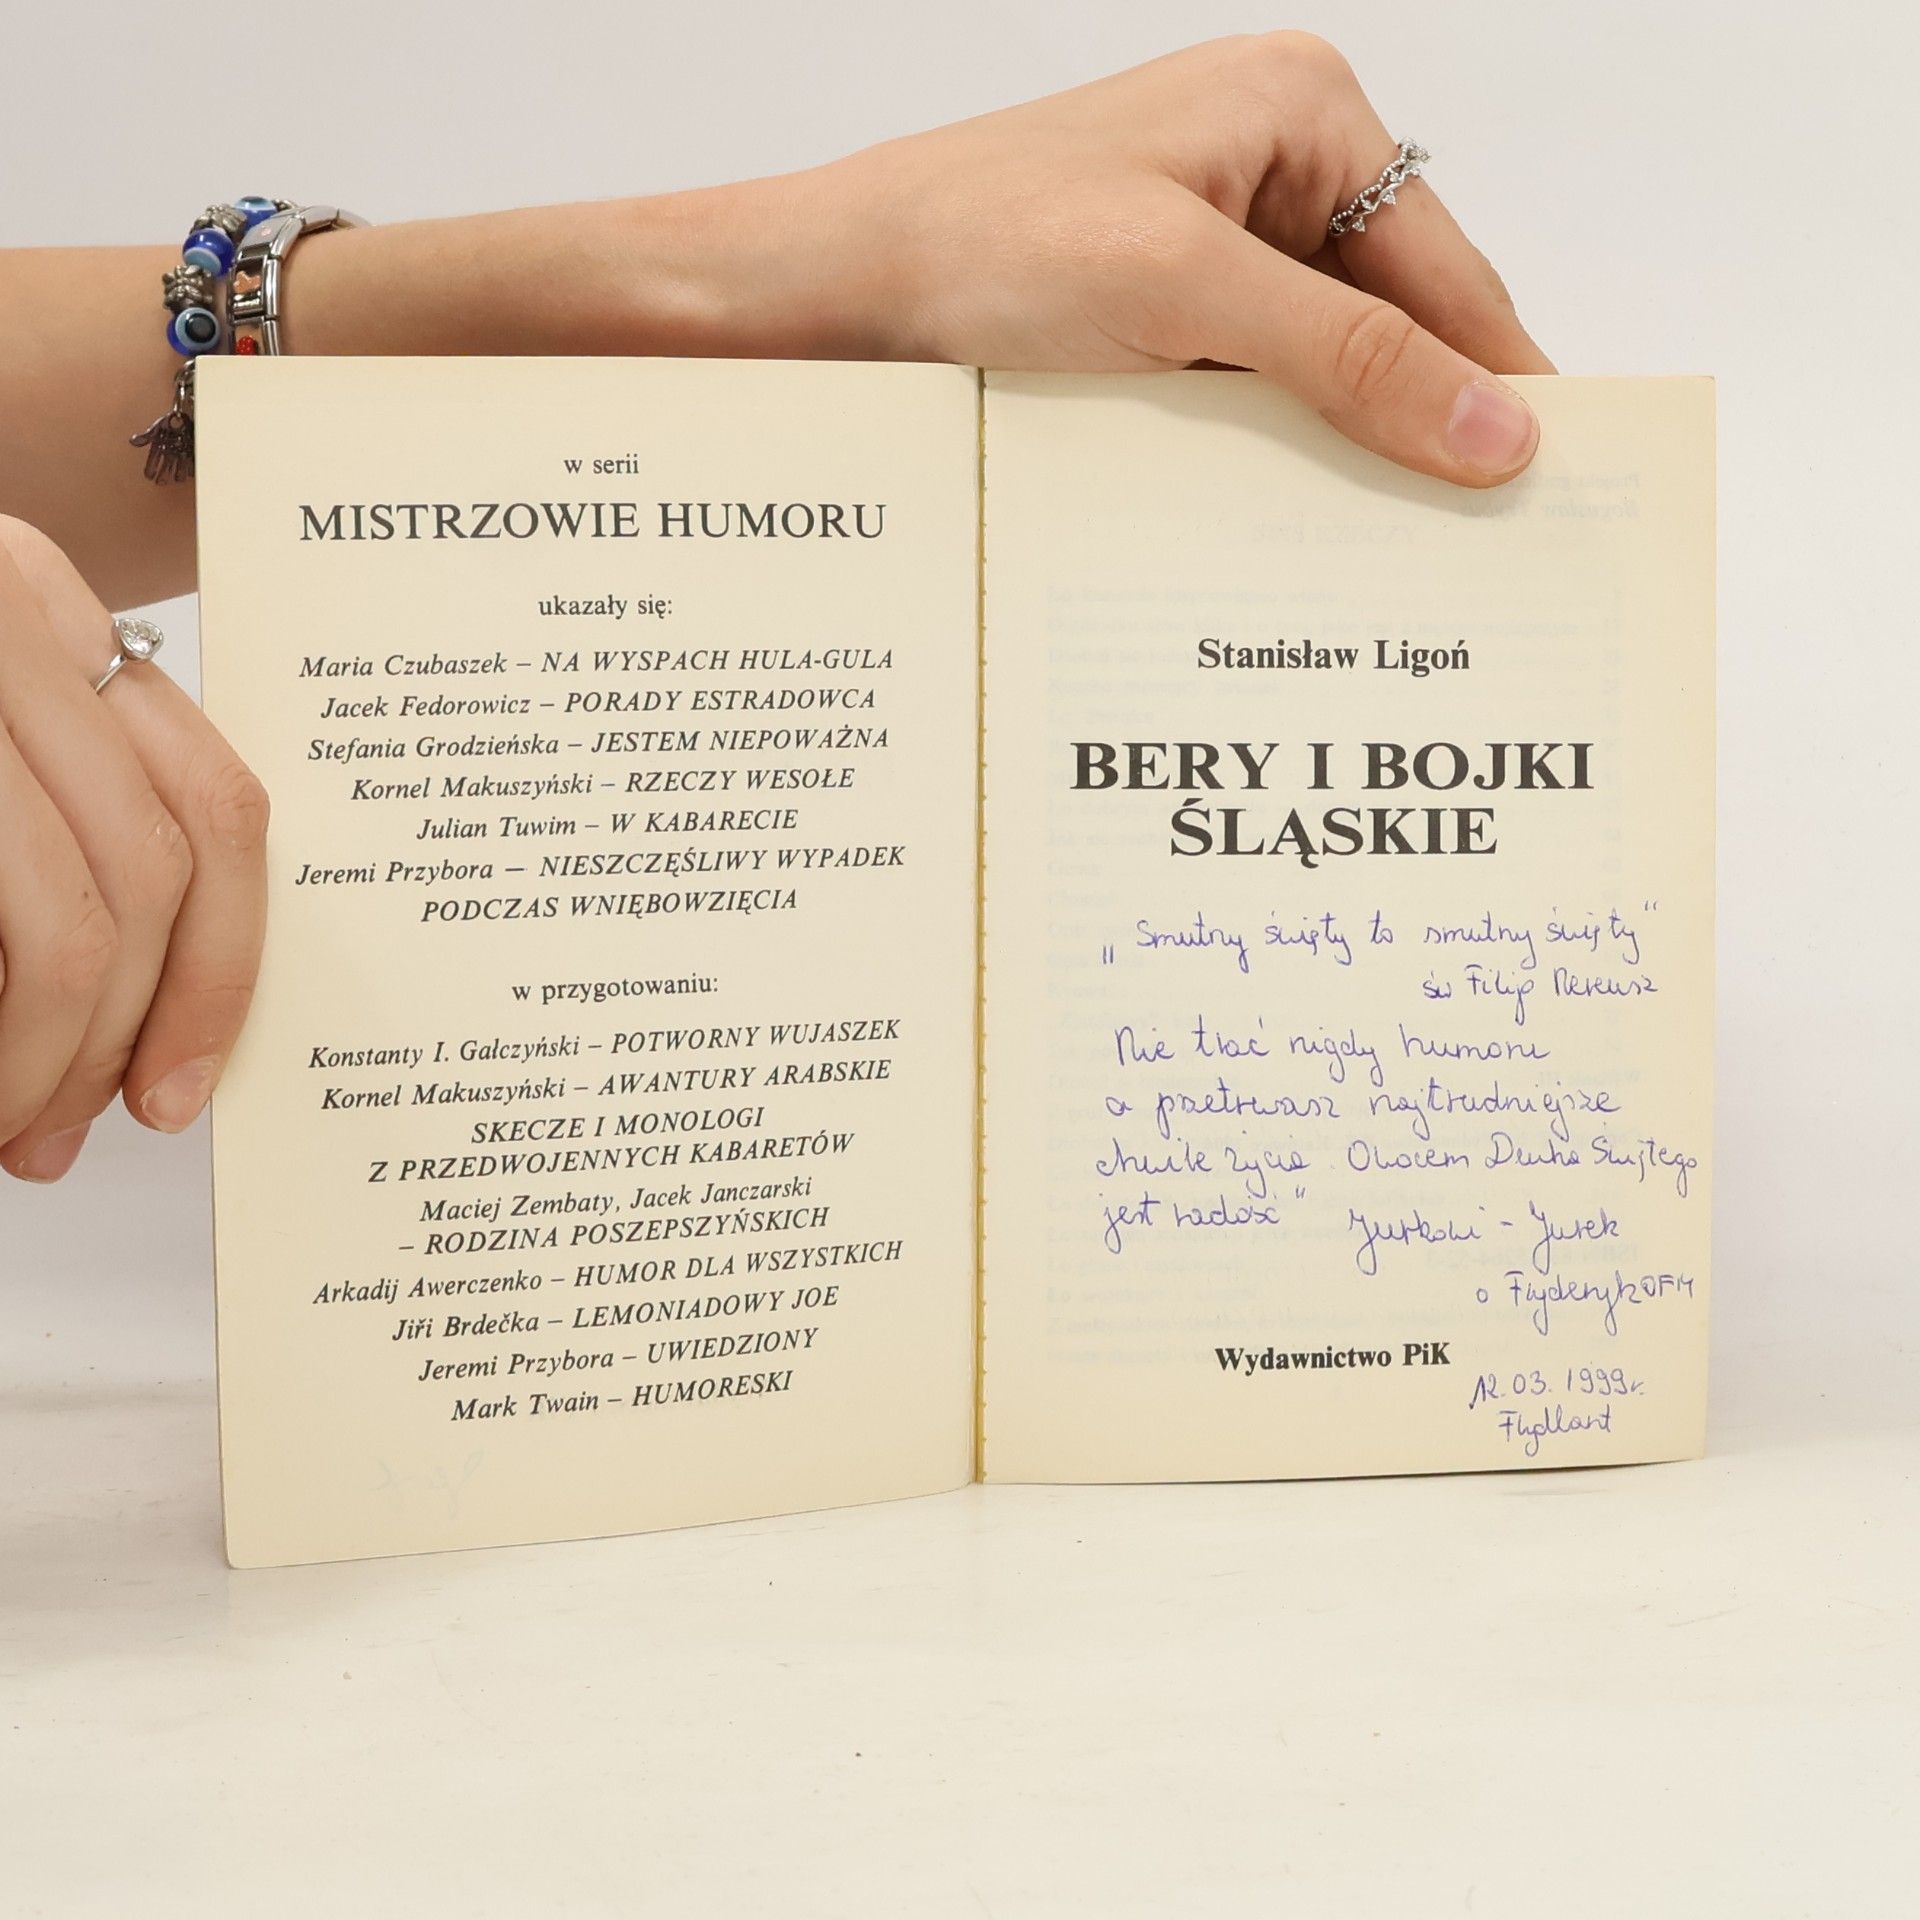 w serii
MISTRZOWIE HUMORU
ukazały się:
Maria Czubaszek – NA WYSPACH HULA-GULA
Jacek Fedorowicz – PORADY ESTRADOWCA
Stefania Grodzieńska – JESTEM NIEPOWAŻNA
Kornel Makuszyński – RZECZY WESOŁE
Julian Tuwim – W KABARECIE
Jeremi Przybora — NIESZCZĘŚLIWY WYPADEK
PODCZAS WNIĘBOWZIĘCIA
w przygotowaniu:
Konstanty I. Gałczyński – POTWORNY WUJASZEK
Kornel Makuszyński – AWANTURY ARABSKIE
SKECZE I MONOLOGI
Z PRZEDWOJENNYCH KABARETÓW
Maciej Zembaty, Jacek Janczarski
– RODZINA POSZEPSZYŃSKICH
Arkadij Awerczenko – HUMOR DLA WSZYSTKICH
Jiři Brdečka – LEMONIADOWY JOE
Jeremi Przybora – UWIEDZIONY
Mark Twain – HUMORESKI
Stanisław Ligoń
BERY I BOJKI
ŚLĄSKIE
„Smutny święty to smutny święty"
św Filip Nereusz
Nie trać nigdy humoru
a przetrwasz najtrudniejsze
chwile życia. Owocem Ducha Świętego
jest radość" Jurkowi – Jurek
o Fryderyk OFM
Wydawnictwo PiK
12.03.1999r.
Frydlant